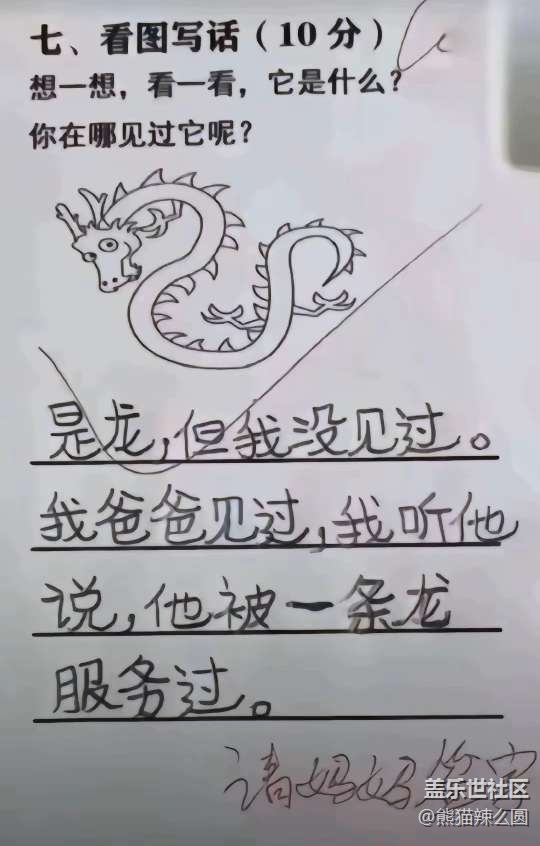 七、看图写话（10 分）
想一想，看一看，它是什么？
你在哪见过它呢？
是龙,但我没见过。
我爸爸见过,我听他
说,他被一条龙
服务过。
请妈妈签字
盖乐世社区
@熊猫辣么圆